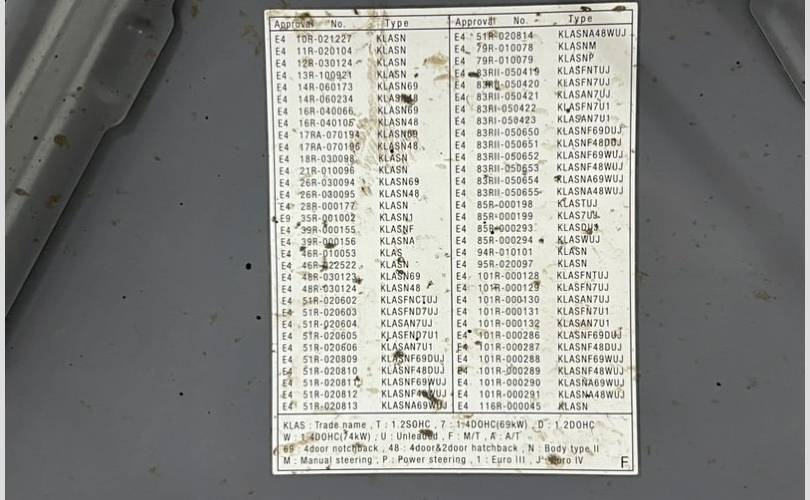 Approval No. Type
E4 10R-021227 KLASN
E4 11R-020104 KLASN
E4 12R-030124 KLASN
E4 13R-100921 KLASN
E4 14R-060173 KLASN69
E4 14R-060234
E4 16R-040066 KLASN69
E4 16R-040105 KLASN48
E4 17RA-070194 KLASN69
E4 17RA-070196 KLASN48
E4 18R-030098 KLASN
E4 21R-010096 KLASN
E4 26R-030094 KLASN69
E4 26R-030095 KLASN48
E4 28R-000177 KLASN
E9 35R-001002 KLASN1
E4 39R-000155 KLASNF
E4 39R-000156 KLASNA
E4 46R-010053 KLAS
E4 KLASN
E4 48R-030123 KLASN69
E4 48R-030124 KLASN48
E4 51R-020602 KLASFNCTUJ
E4 51R-020603 KLASFND7UJ
E4 51R-020604 KLASAN7UJ
E4 51R-020605 KLASFND7U1
E4 51R-020606 KLASAN7U1
E4 51R-020809 KLASNF69DUJ
E4 51R-020810 KLASNF48DUJ
E4 51R-020811 KLASNF69WUJ
E4 51R-020812
E4 51R-020813 KLASNA69WUJ
Approval No. Type
E4 51R-020814 KLASNA48WUJ
E4 79R-010078 KLASNM
E4 79R-010079 KLASNP
E4 83RII-050419 KLASFNTUJ
E4 83RII-050420 KLASFN7UJ
E4 83RII-050421 KLASAN7UJ
E4 83RI-050422 KLASFN7U1
E4 83RI-050423 KLASAN7U1
E4 83RII-050650 KLASNF69DUJ
E4 83RII-050651 KLASNF48DUJ
E4 83RII-050652 KLASNF69WUJ
E4 83RII-050653 KLASNF48WUJ
E4 83RII-050654 KLASNA69WUJ
E4 83RII-050655 KLASNA48WUJ
E4 85R-000198 KLASTUJ
E4 85R-000199 KLAS7UJ
E4 85R-000293 KLASDUJ
E4 85R-000294 KLASWUJ
E4 94R-010101 KLASN
E4 95R-020097 KLASN
E4 101R-000128 KLASFNTUJ
E4 101R-000129 KLASFN7UJ
E4 101R-000130 KLASAN7UJ
E4 101R-000131 KLASFN7U1
E4 101R-000132 KLASAN7U1
E4 101R-000286 KLASNF69DUJ
E4 101R-000287 KLASNF48DUJ
E4 101R-000288 KLASNF69WUJ
E4 101R-000289 KLASNF48WUJ
E4 101R-000290 KLASNA69WUJ
E4 101R-000291 KLASNA48WUJ
E4 116R-000045 KLASN
KLAS : Trade name , T : 1.2SOHC , 7 : 1.4DOHC(69kW) , D : 1.2DOHC
W : 1.4DOHC(74kW) , U : Unleaded , F : M/T , A : A/T
69 : 4door notchback , 48 : 4door&2door hatchback , N : Body type II
M : Manual steering , P : Power steering , 1 : Euro III , J : Euro IV
F